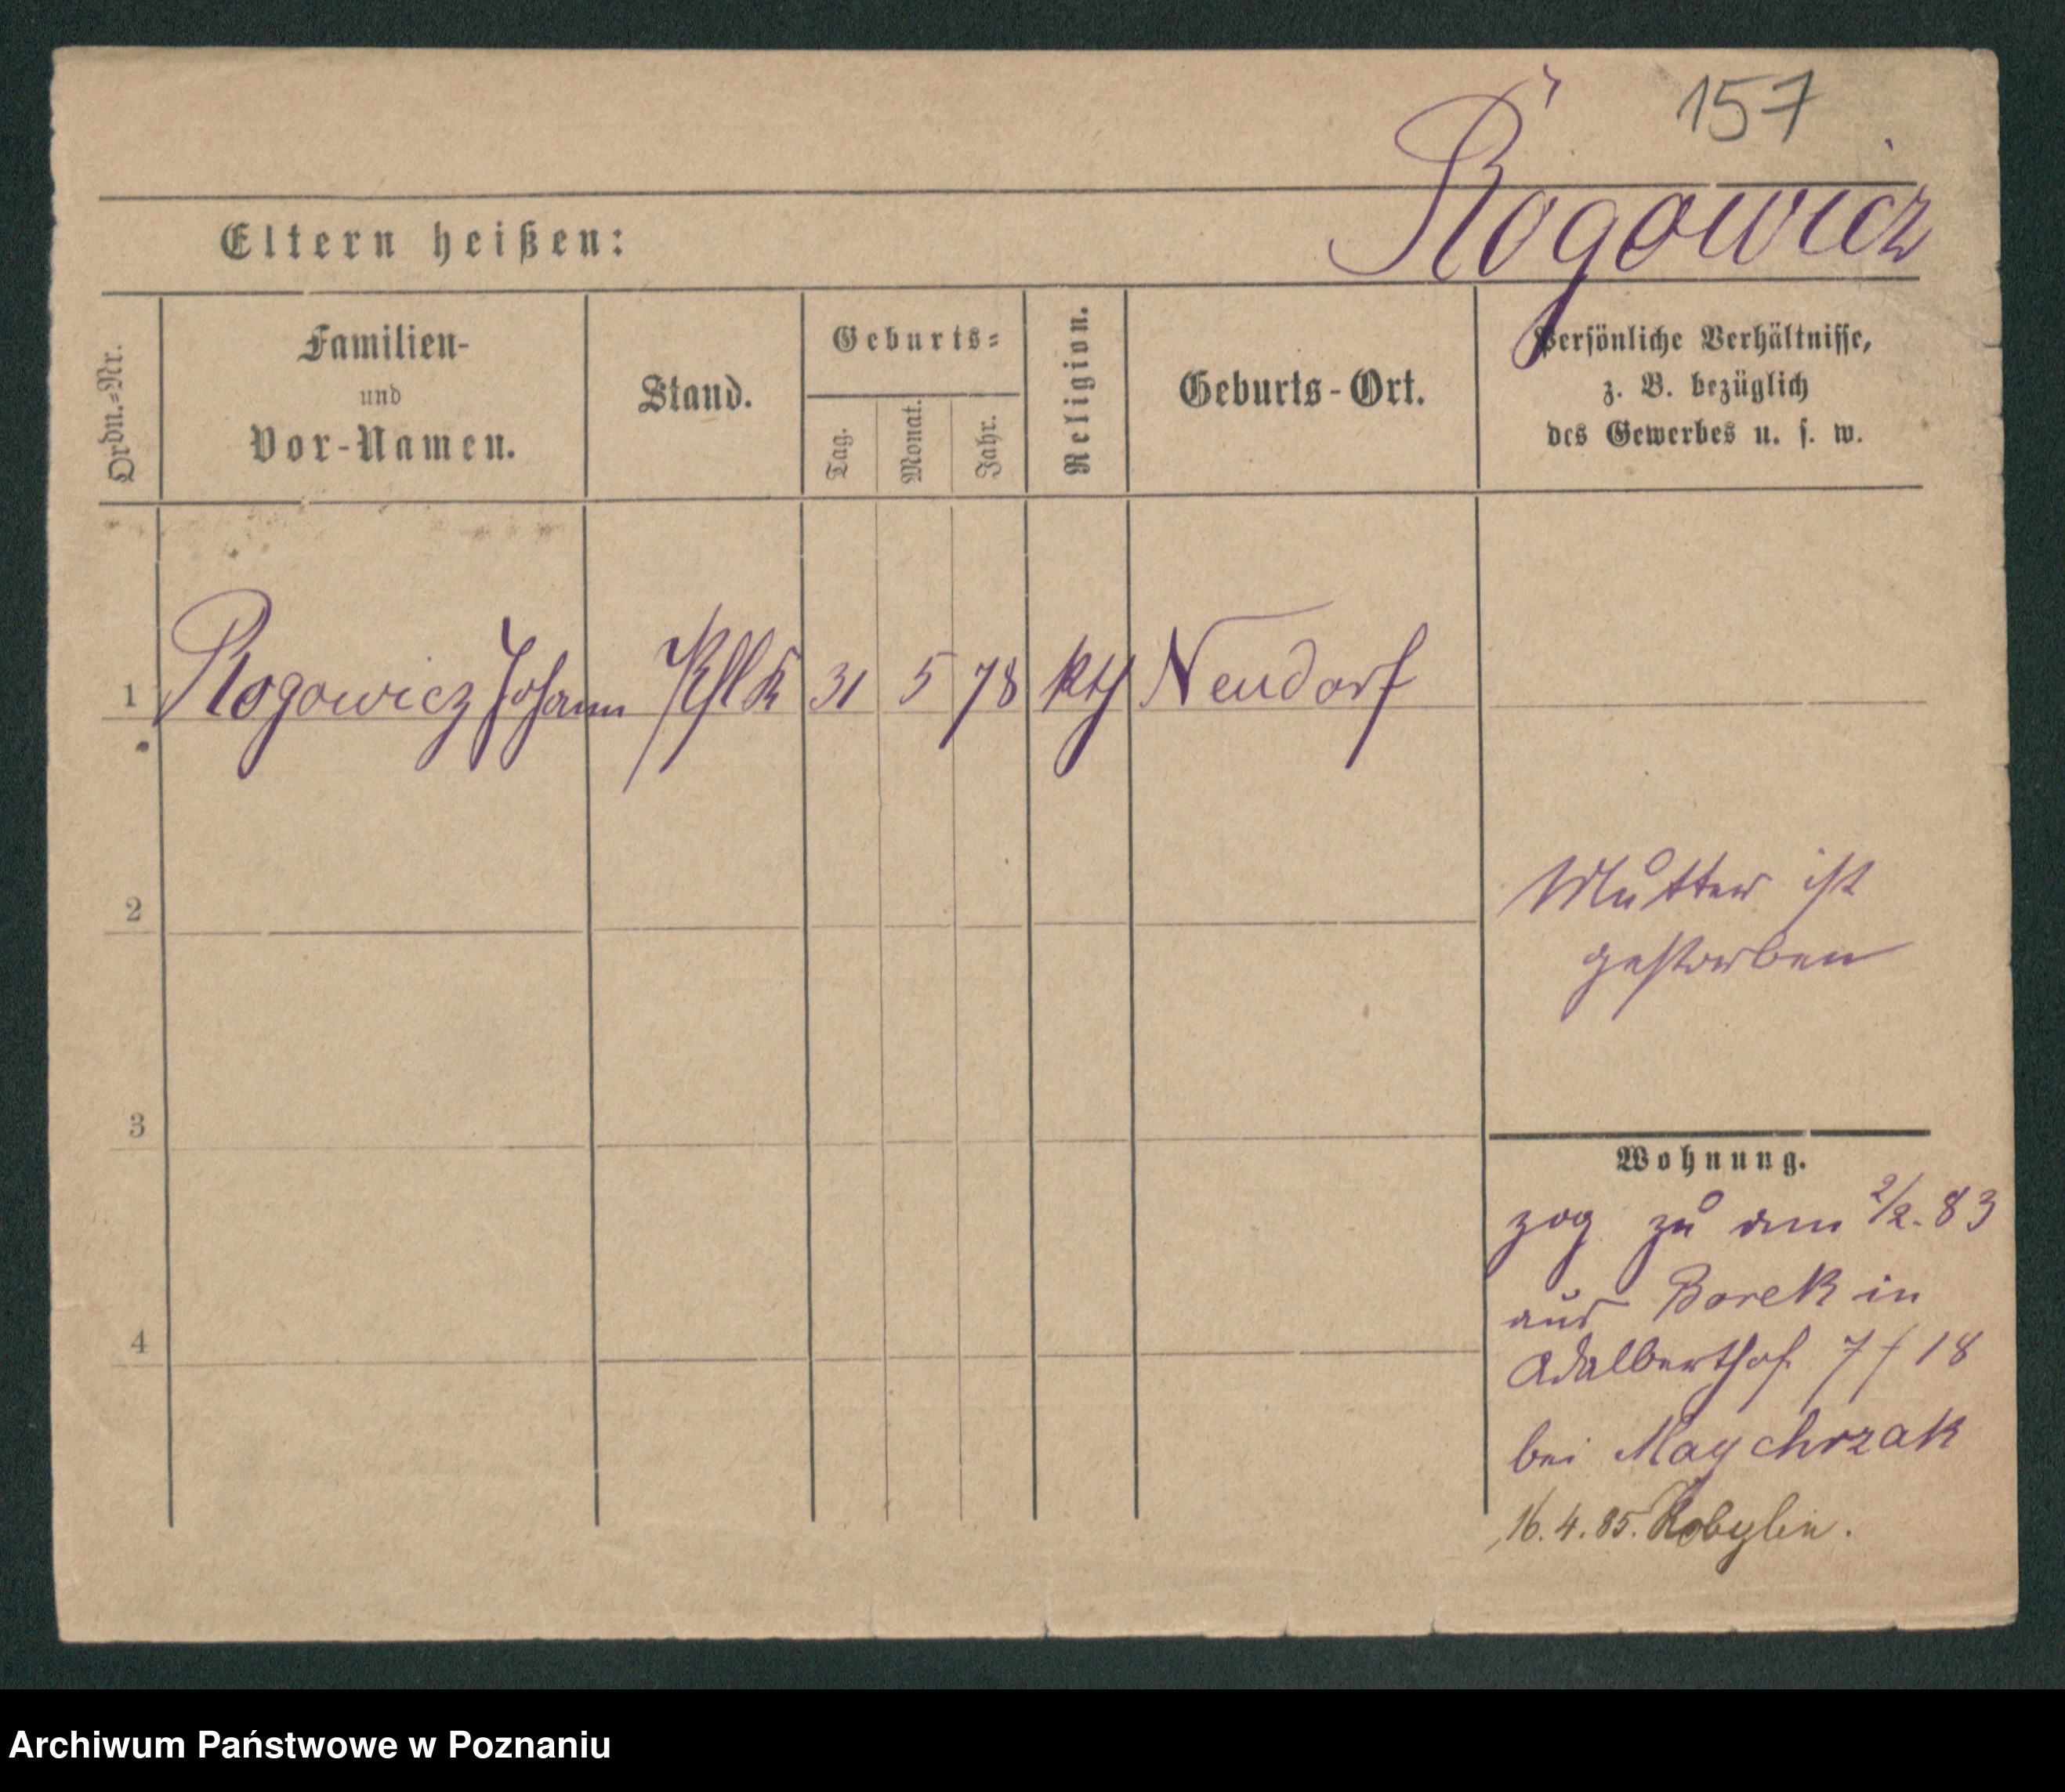 157
Rogowicz
Eltern heißen:
Ordn.=Nr.
Familien-
und
Vor-Namen.
Stand.
Geburts=
Tag.
Monat.
Jahr.
Religion.
Geburts-Ort.
Persönliche Verhältnisse,
z. B. bezüglich
des Gewerbes u. s. w.
1 Rogowicz Johann 31 5 78 kth Neudorf
2
Mutter ist
gestorben
3
4
Wohnung.
zog zu am 2/2. 83
aus Borek in
Adalberthof 7 / 18
bei Maychrzak
16. 4. 85. Kobylin.
Archiwum Państwowe w Poznaniu